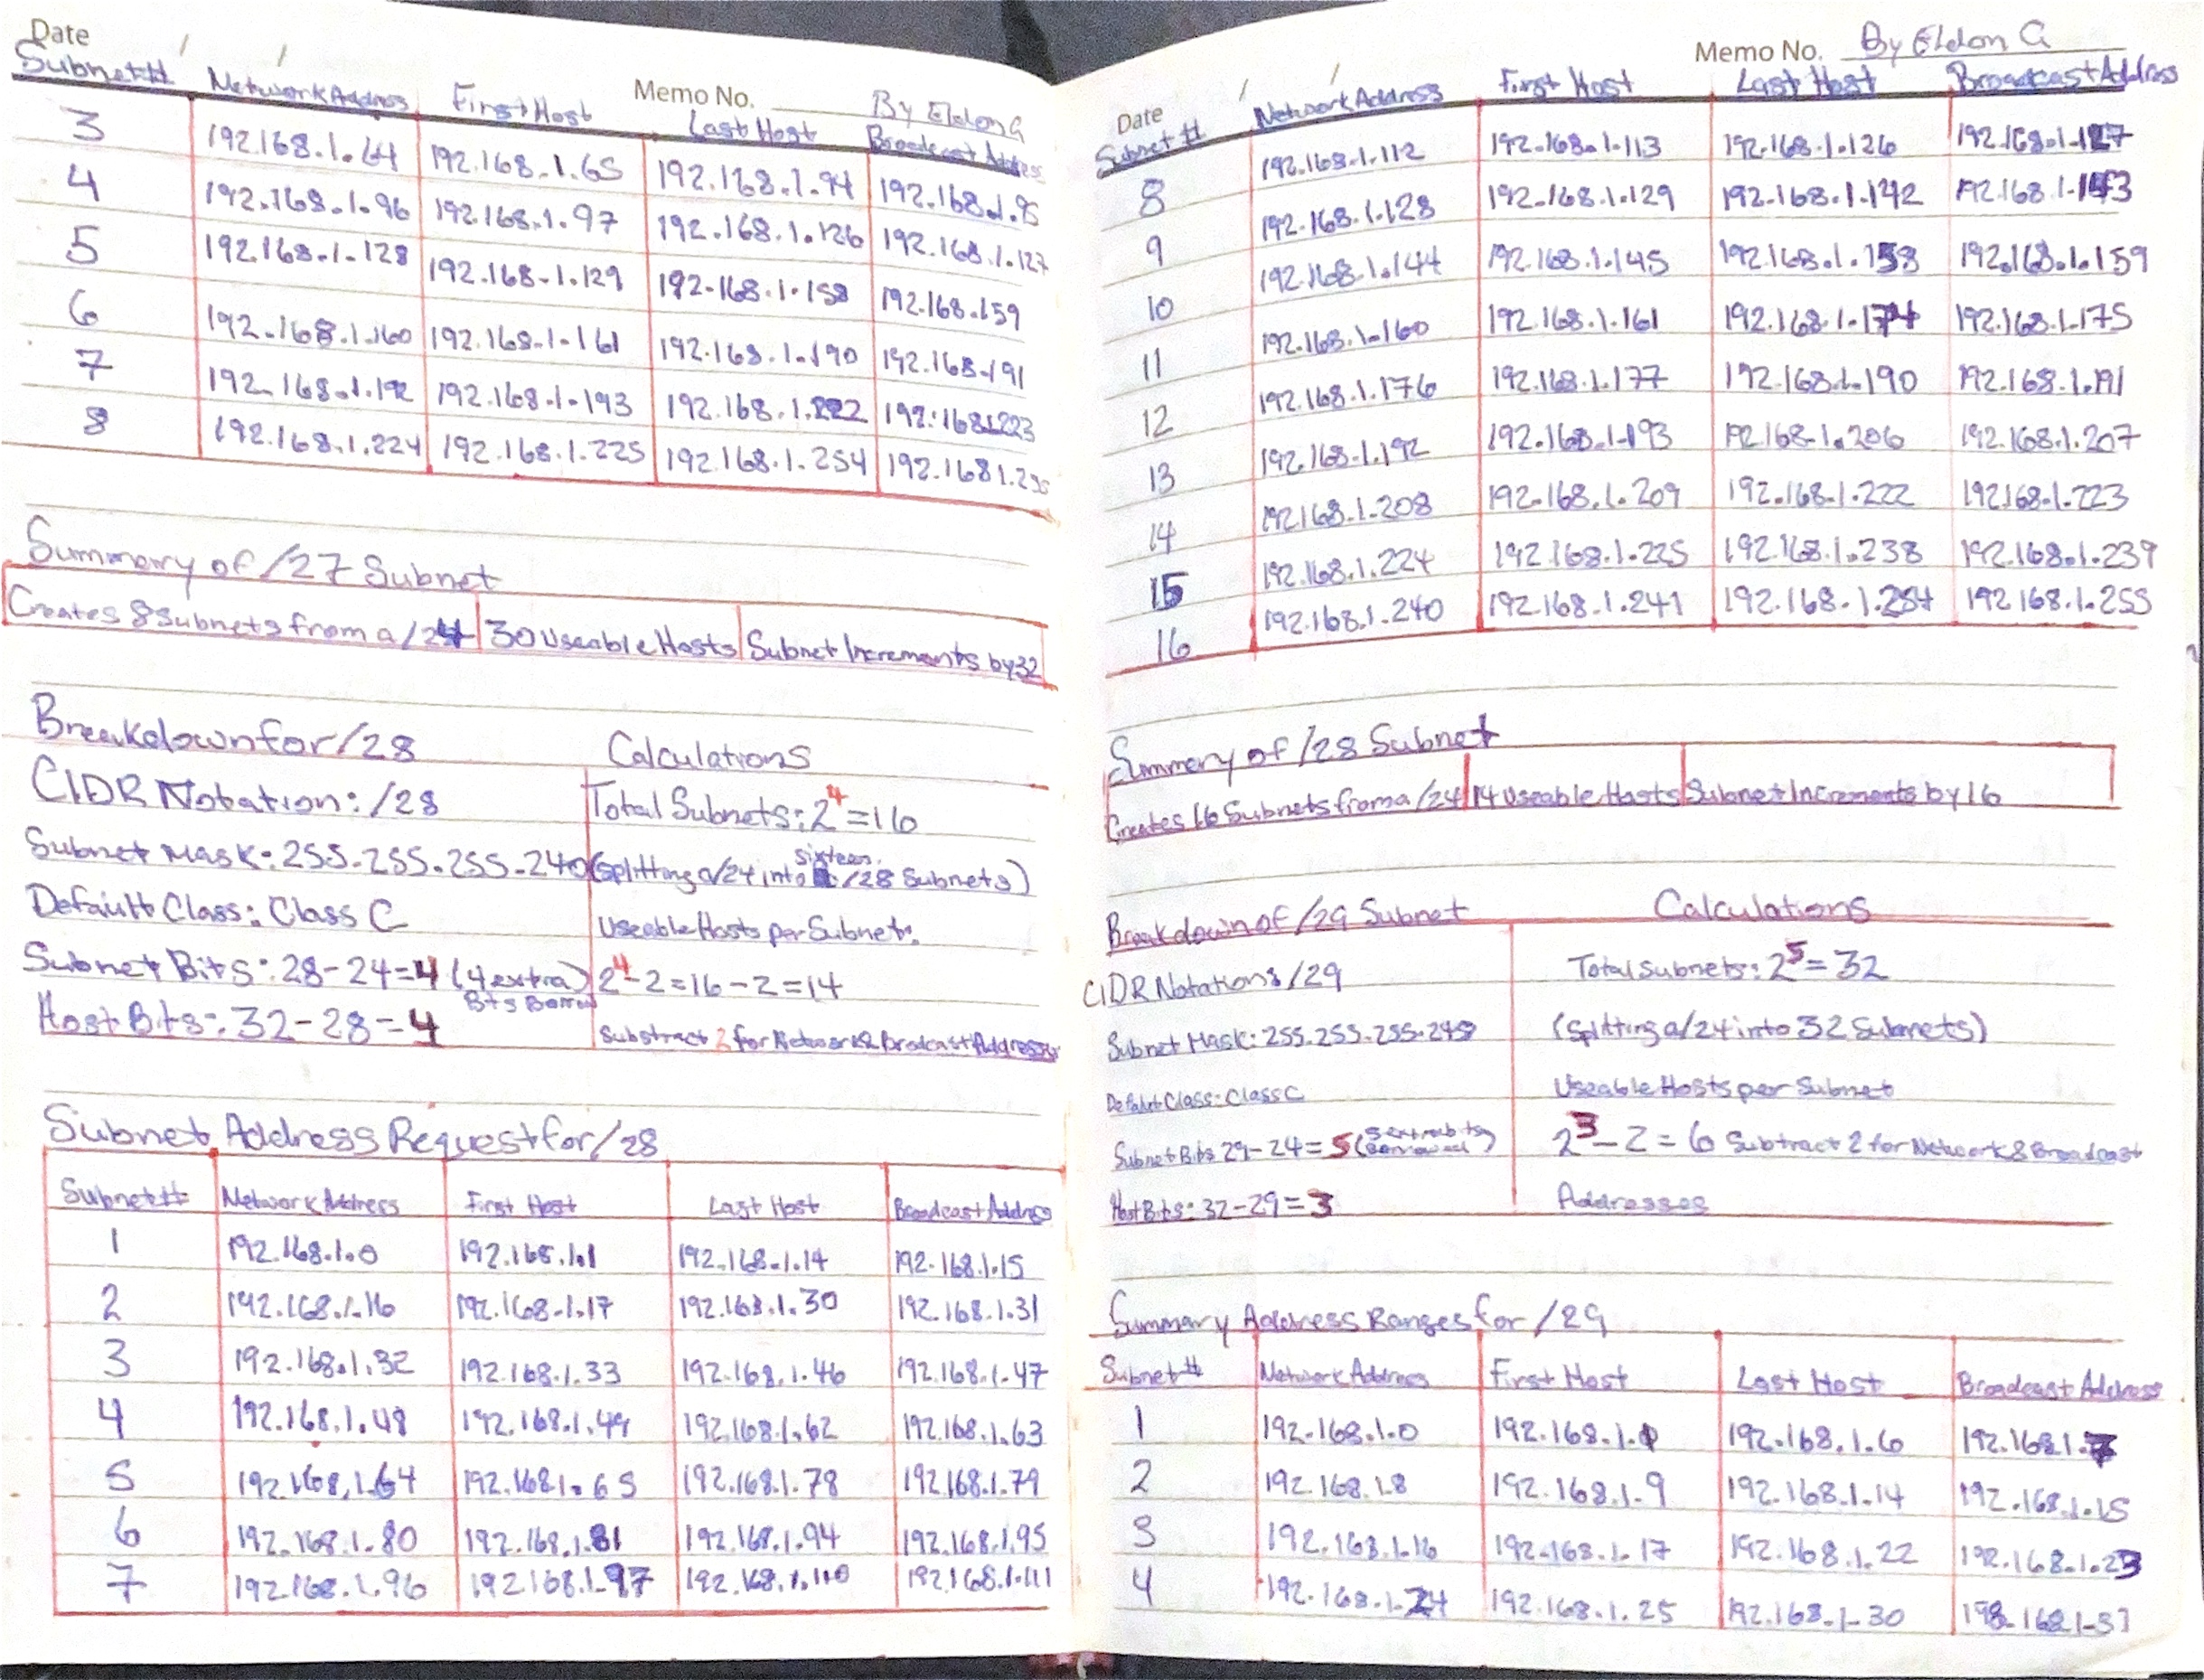 Date
Memo No. By Eldon G
Subnet# Network Address First Host Last Host Broadcast Address
3 192.168.1.64 192.168.1.65 192.168.1.94 192.168.1.95
4 192.168.1.96 192.168.1.97 192.168.1.126 192.168.1.127
5 192.168.1.128 192.168.1.129 192.168.1.158 192.168.159
6 192.168.1.160 192.168.1.161 192.168.1.190 192.168.191
7 192.168.1.192 192.168.1.193 192.168.1.222 192.168.1.223
8 192.168.1.224 192.168.1.225 192.168.1.254 192.1681.255
Summary of /27 Subnet
Creates 8 Subnets from a /24 30 Useable Hosts Subnet Increments by 32
Breakdown for /28 Calculations
CIDR Notation: /28 Total Subnets: 2^4 = 16
Subnet Mask: 255.255.255.240 (Splitting a /24 into sixteen /28 Subnets)
Default Class: Class C Useable Hosts per Subnet:
Subnet Bits: 28-24=4 (4 extra Bits Borrow) 2^4-2=16-2=14
Host Bits: 32-28=4 Substract 2 for Network & Brodcast Address
Subnet Address Request for /28
Subnet# Network Address First Host Last Host Broadcast Address
1 192.168.1.0 192.168.1.1 192.168.1.14 192.168.1.15
2 192.168.1.16 192.168.1.17 192.168.1.30 192.168.1.31
3 192.168.1.32 192.168.1.33 192.168.1.46 192.168.1.47
4 192.168.1.48 192.168.1.49 192.168.1.62 192.168.1.63
5 192.168.1.64 192.168.1.65 192.168.1.78 192.168.1.79
6 192.168.1.80 192.168.1.81 192.168.1.94 192.168.1.95
7 192.168.1.96 192.168.1.97 192.168.1.110 192.168.1.111
Memo No. By Eldon G
Date
Subnet # Network Address First Host Last Host Broadcast Address
8 192.168.1.112 192.168.1.113 192.168.1.126 192.168.1.127
9 192.168.1.128 192.168.1.129 192.168.1.142 192.168.1.143
10 192.168.1.144 192.168.1.145 192.168.1.158 192.168.1.159
11 192.168.1.160 192.168.1.161 192.168.1.174 192.168.1.175
12 192.168.1.176 192.168.1.177 192.168.1.190 192.168.1.191
13 192.168.1.192 192.168.1.193 192.168.1.206 192.168.1.207
14 192.168.1.208 192.168.1.209 192.168.1.222 192.168.1.223
15 192.168.1.224 192.168.1.225 192.168.1.238 192.168.1.239
16 192.168.1.240 192.168.1.241 192.168.1.254 192.168.1.255
Summery of /28 Subnet
Creates 16 Subnets from a /24 14 Useable Hosts Subnet Increments by 16
Breakdown of /29 Subnet Calculations
CIDR Notations /29 Total Subnets: 2^5 = 32
Subnet Mask: 255.255.255.248 (Splitting a /24 into 32 Subnets)
Default Class: Class C Useable Hosts per Subnet
Subnet Bits 29-24=5 (5 extra bits borrowed) 2^3-2=6 Subtract 2 for Network & Broadcast
Host Bits: 32-29=3 Addresses
Summary Address Ranges for /29
Subnet# Network Address First Host Last Host Broadcast Address
1 192.168.1.0 192.168.1.1 192.168.1.6 192.168.1.7
2 192.168.1.8 192.168.1.9 192.168.1.14 192.168.1.15
3 192.168.1.16 192.168.1.17 192.168.1.22 192.168.1.23
4 192.168.1.24 192.168.1.25 192.168.1.30 198.168.1.31